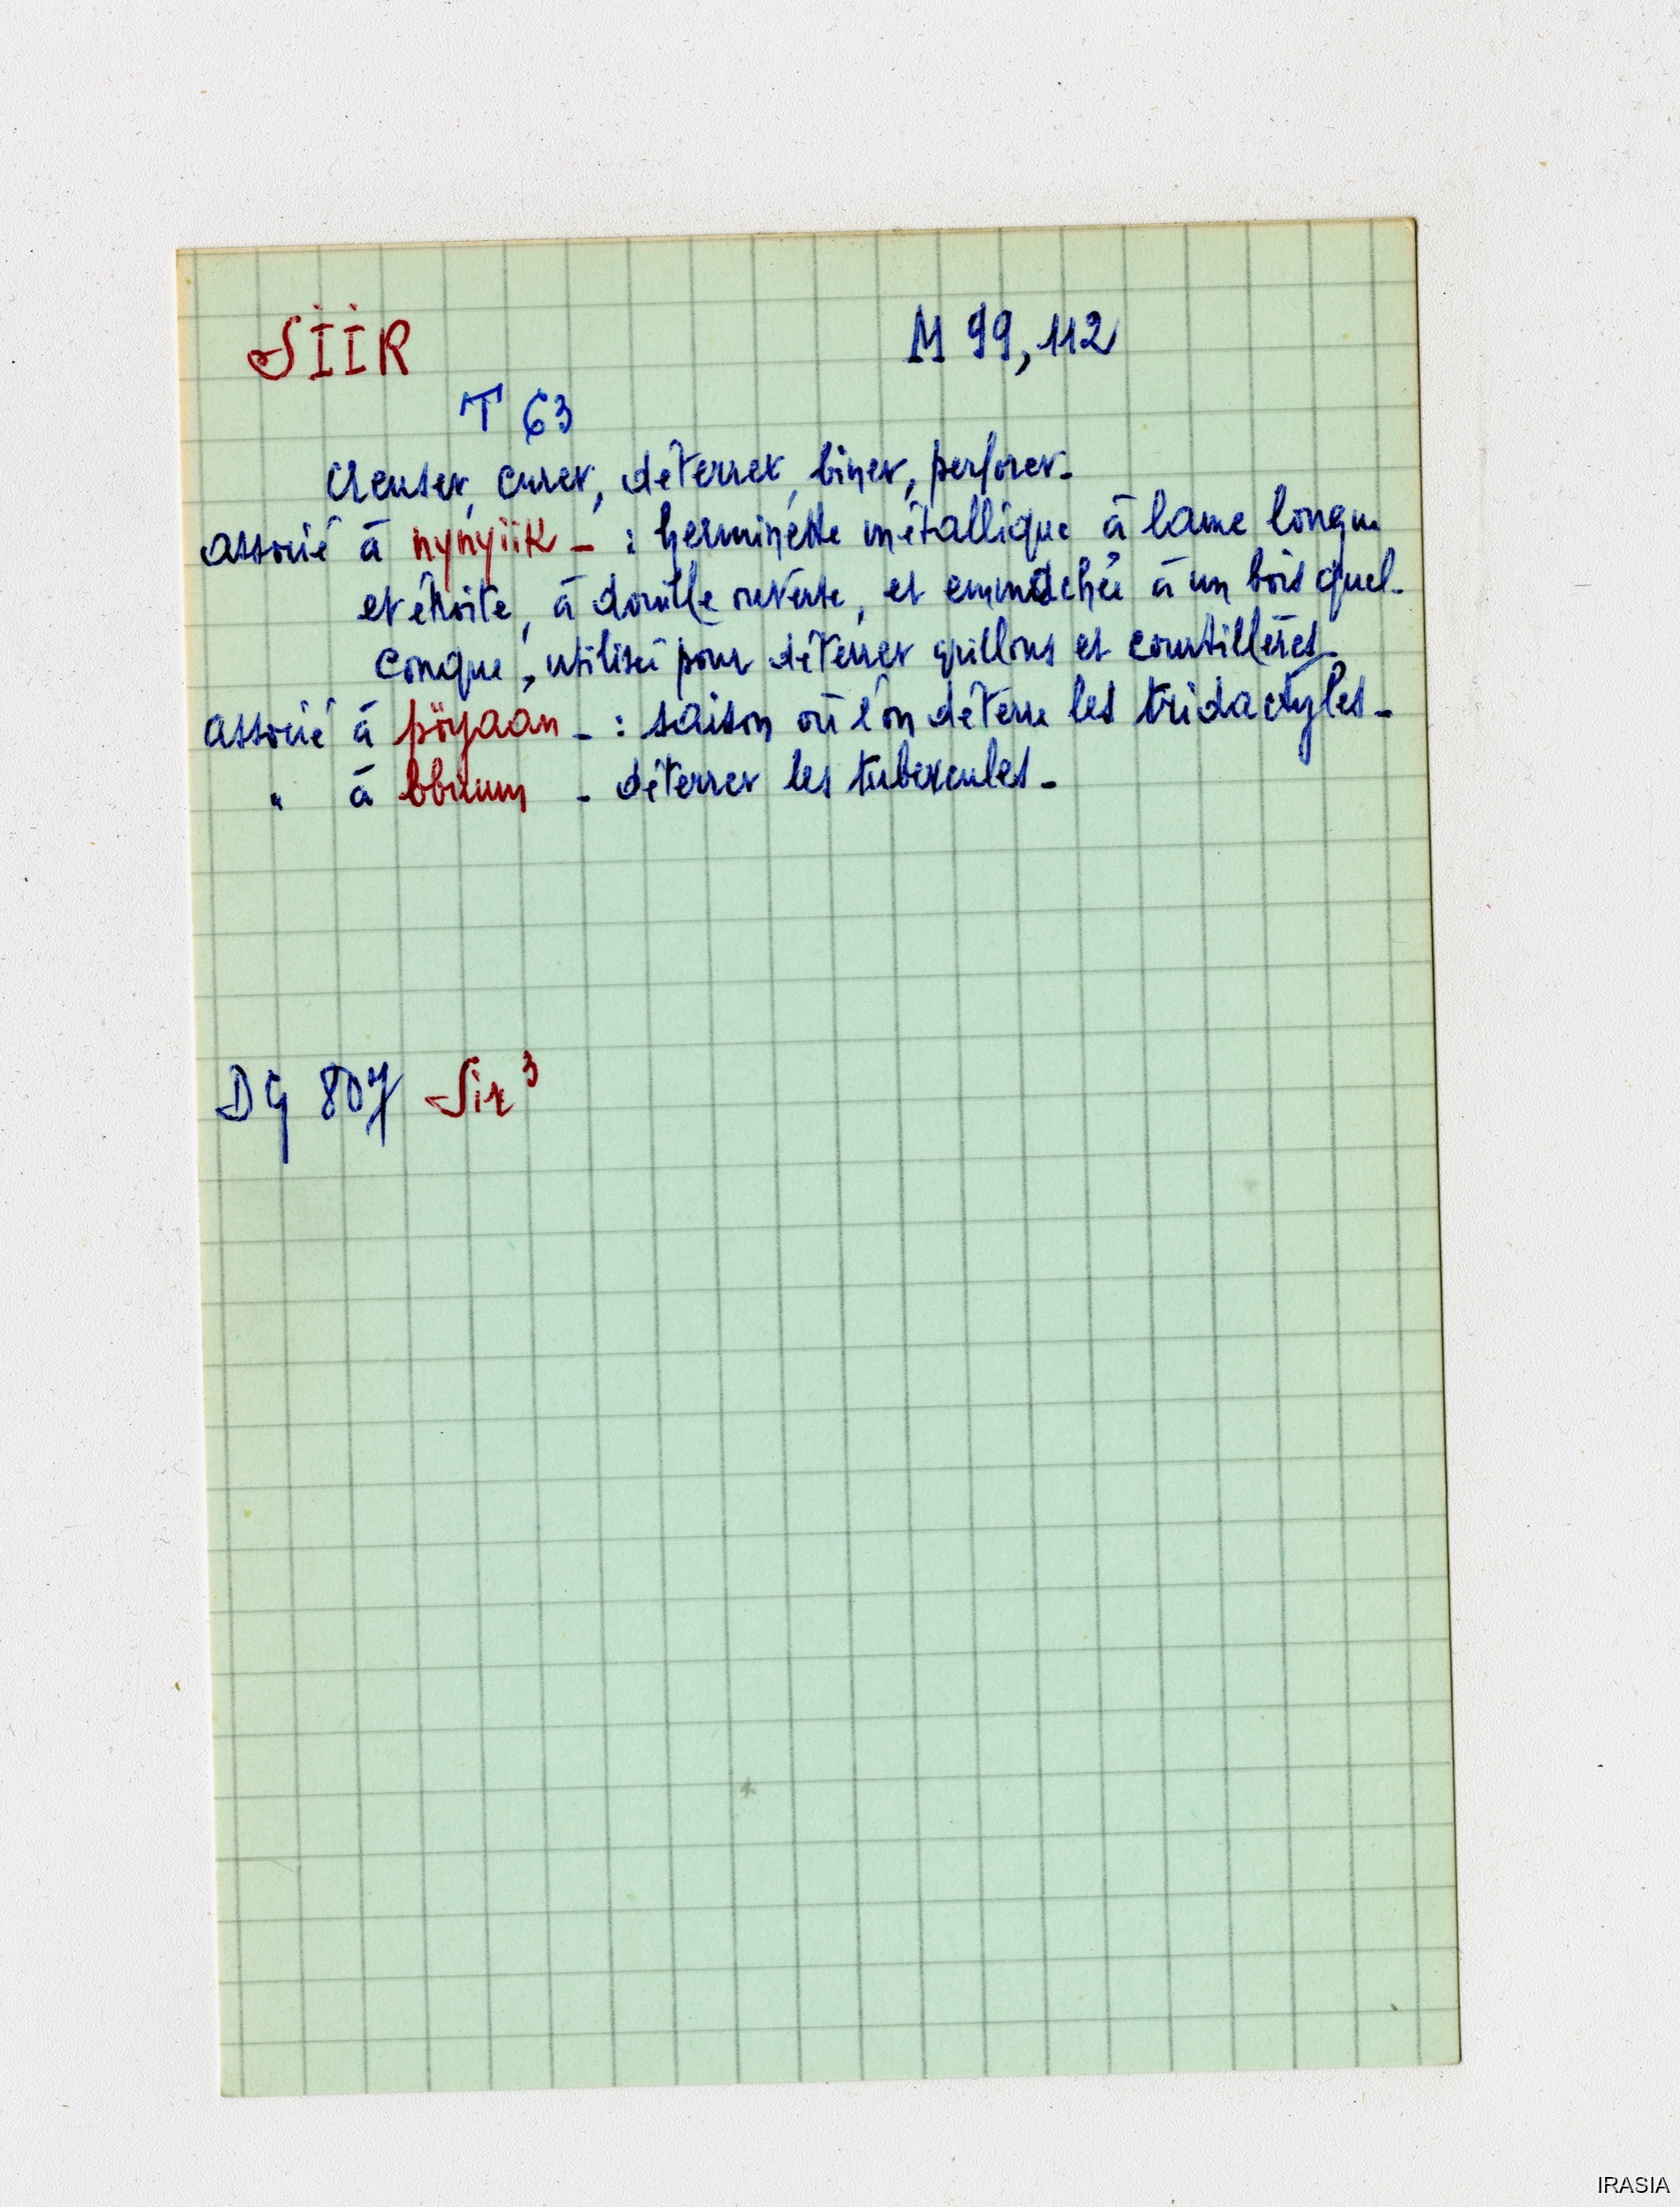 SIIR M 99, 112
T 63
creuser, curer, déterrer, biner, perforer.
associé à nynyiik – : herminette métallique à lame longue
et étroite, à douille ouverte, et emmachée à un bois quel-
conque, utilisée pour déterrer grillons et courtillères.
associé à pöyaan – : saison où l'on déterre les tridactyles –
" à – déterrer les tubercules –
DG 807 Sir³
IRASIA